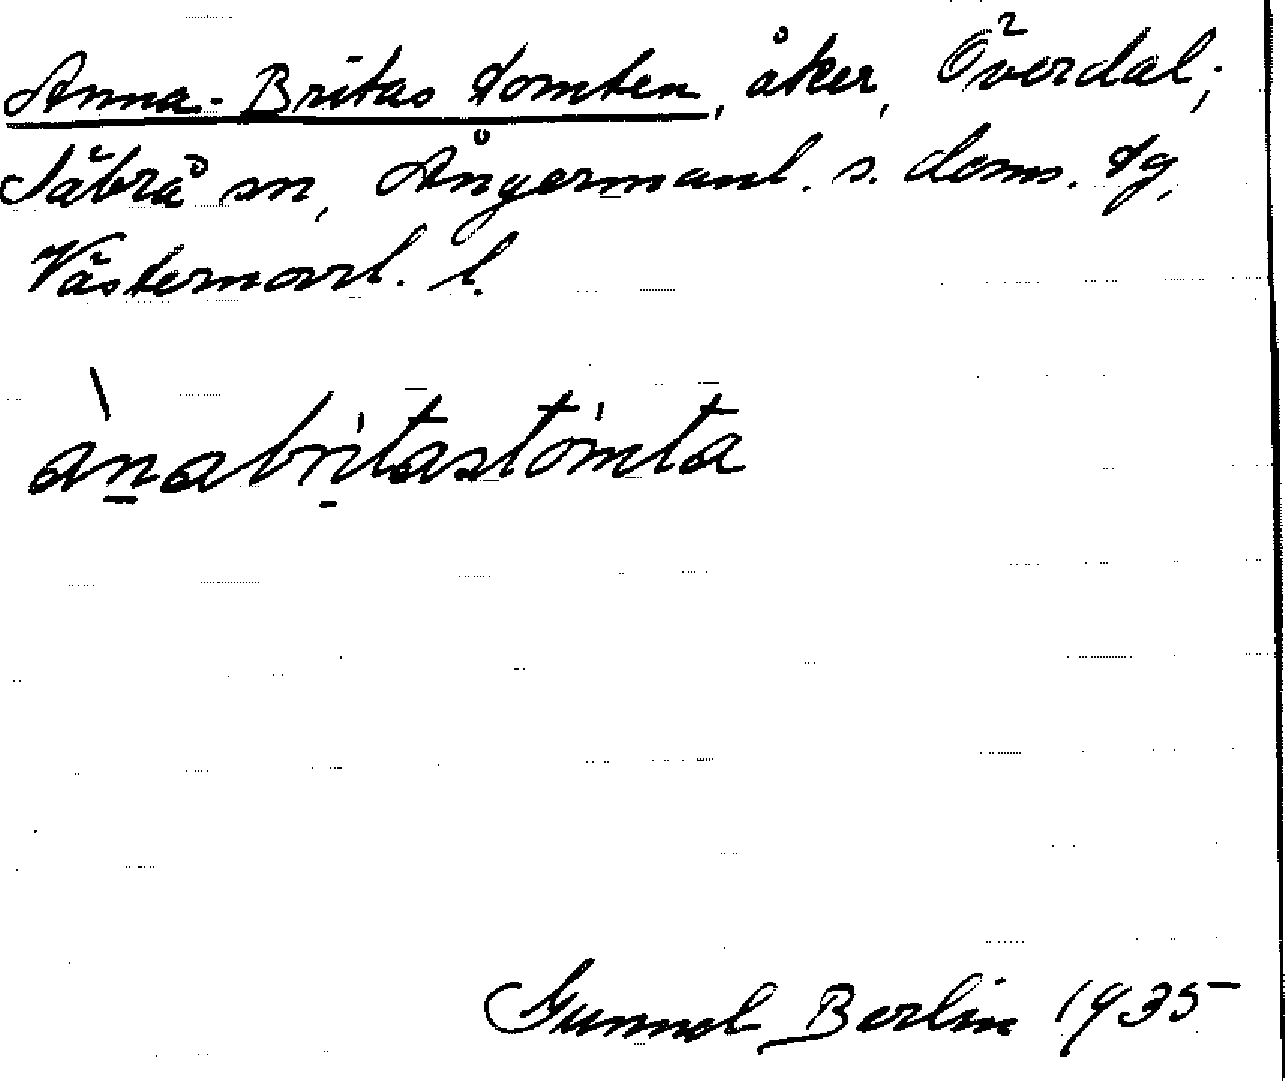 Anna-Britas tomten, åker, Överdal²;
Säbrå sn, Ångermanl. s. doms. tg,
Västernorrl. l.
ànabritastòmta
Gunnel Berlin 1935